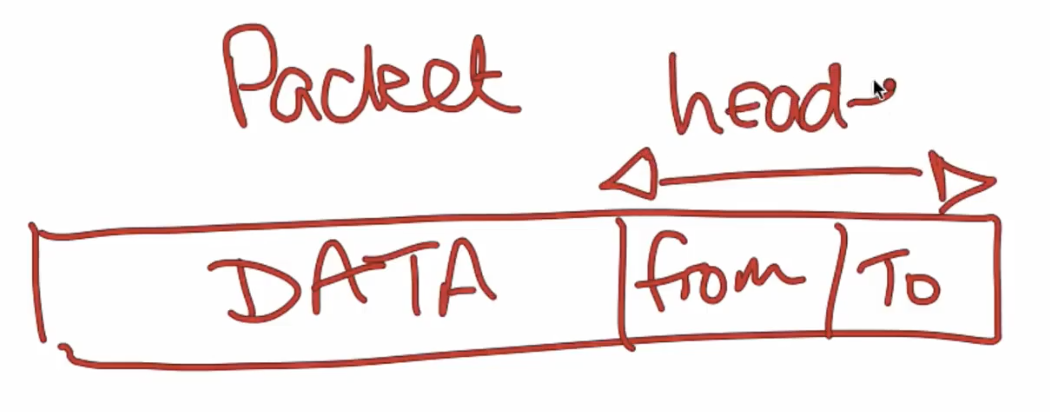 Packet head
DATA from To